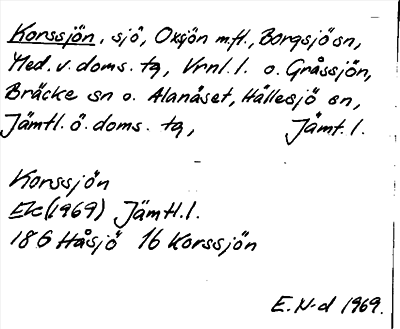 Korssjön, sjö, Oxsjön m.fl., Borgsjö sn,
Med. v. doms. tg, Vrnl. l. o. Gråssjön,
Bräcke sn o. Alanäset, Hällesjö sn,
Jämtl. ö. doms. tg, Jämt. l.
Korssjön
Ek (1969) Jämtl. l.
18 G Håsjö 16 Korssjön
E. N-d 1969.